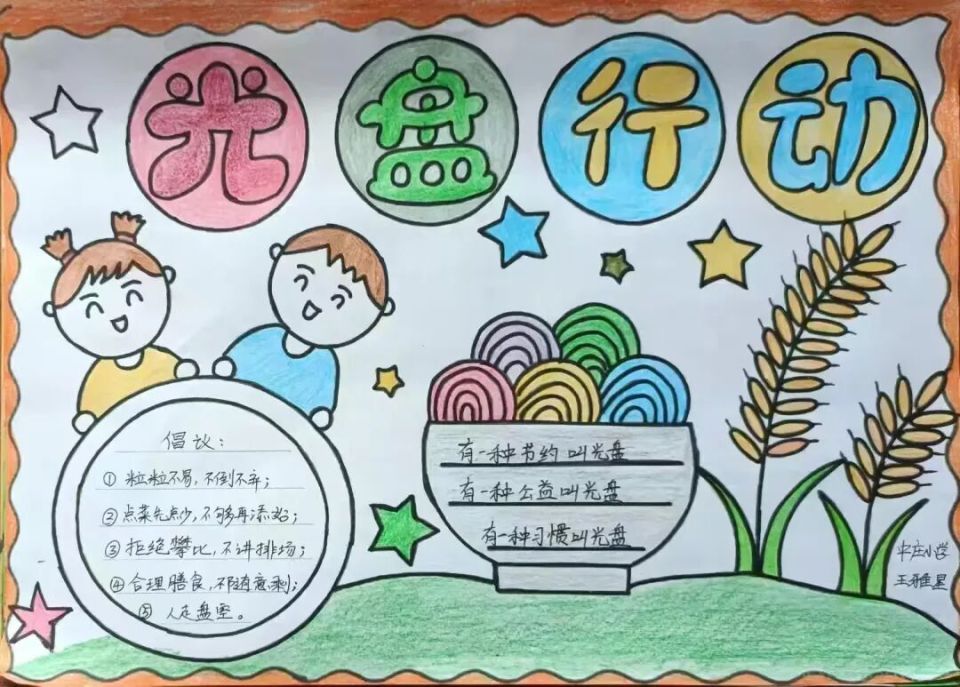 光盘行动
倡议:
① 粒粒不易,不倒不弃;
② 点菜先点少,不够再添路;
③ 拒绝攀比,不讲排场;
④ 合理膳食,不随意剩;
⑤ 人走盘空。
有一种节约叫光盘
有一种公益叫光盘
有一种习惯叫光盘
牛庄小学
王雅星